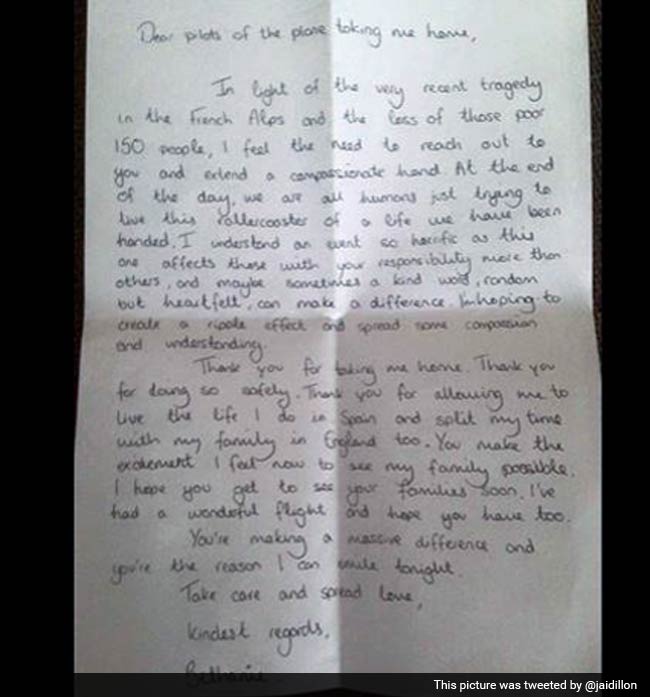 Dear pilots of the plane taking me home,
In light of the very recent tragedy
in the French Alps and the loss of those poor
150 people, I feel the need to reach out to
you and extend a compassionate hand. At the end
of the day, we are all humans just trying to
live this rollercoaster of a life we have been
handed. I understand an event so horrific as this
one affects those with your responsibility more than
others, and maybe sometimes a kind word, random
but heartfelt, can make a difference. I'm hoping to
create a ripple effect and spread some compassion
and understanding.
Thank you for taking me home. Thank you
for doing so safely. Thank you for allowing me to
live the life I do in Spain and split my time
with my family in England too. You make the
excitement I feel now to see my family possible.
I hope you get to see your families soon. I've
had a wonderful flight and hope you have too.
You're making a massive difference and
you're the reason I can smile tonight.
Take care and spread love,
kindest regards,
Bethanie
This picture was tweeted by @jaidillon